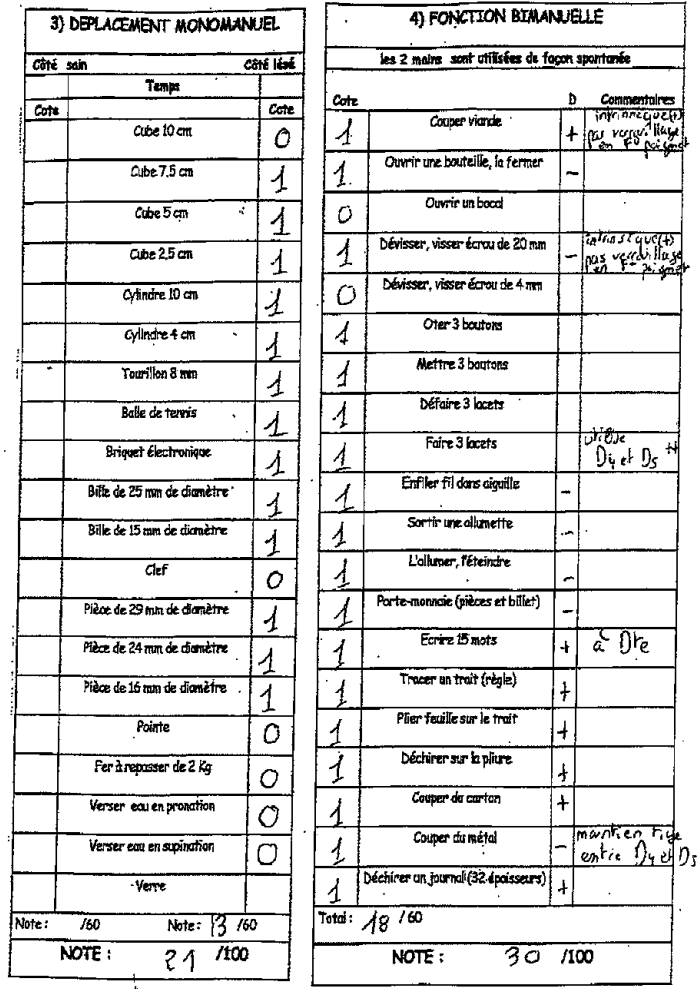 3) DEPLACEMENT MONOMANUEL
Côté sain Côté lésé
Temps
Cote Cote
Cube 10 cm 0
Cube 7,5 cm 1
Cube 5 cm 1
Cube 2,5 cm 1
Cylindre 10 cm 1
Cylindre 4 cm 1
Tourillon 8 mm 1
Balle de tennis 1
Briquet électronique 1
Bille de 25 mm de diamètre 1
Bille de 15 mm de diamètre 1
Clef 0
Pièce de 29 mm de diamètre 1
Pièce de 24 mm de diamètre 1
Pièce de 16 mm de diamètre 1
Pointe 0
Fer à repasser de 2 Kg 0
Verser eau en pronation 0
Verser eau en supination 0
Verre
Note : /60 Note : 13 /60
NOTE : 21 /100
4) FONCTION BIMANUELLE
les 2 mains sont utilisées de façon spontanée
Cote D Commentaires
1 Couper viande + intrinsèque(+)
pas verrouillage
en F° poignet
1 Ouvrir une bouteille, la fermer -
0 Ouvrir un bocal
1 Dévisser, visser écrou de 20 mm - intrinsèque(+)
pas verrouillage
en F° poignet
0 Dévisser, visser écrou de 4 mm
1 Oter 3 boutons
1 Mettre 3 boutons
1 Défaire 3 lacets
1 Faire 3 lacets utilise
D4 et D5 ++
1 Enfiler fil dans aiguille -
1 Sortir une allumette -
1 L'allumer, l'éteindre -
1 Porte-monnaie (pièces et billet) -
1 Ecrire 15 mots + à Dte
1 Tracer un trait (règle) +
1 Plier feuille sur le trait +
1 Déchirer sur la pliure +
1 Couper du carton +
1 Couper du métal - maintien tige
entre D4 et D5
1 Déchirer un journal (32 épaisseurs) +
Total : 18 /60
NOTE : 30 /100